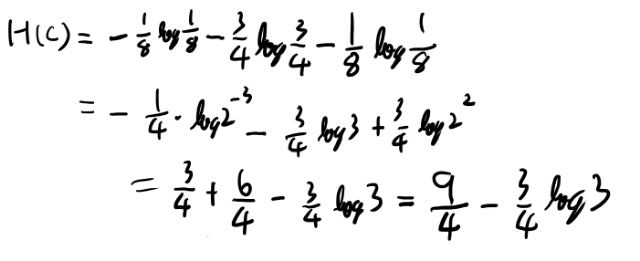 H(C) = - 1/8 log 1/8 - 3/4 log 3/4 - 1/8 log 1/8
= - 1/4 · log 2^-3 - 3/4 log 3 + 3/4 log 2^2
= 3/4 + 6/4 - 3/4 log 3 = 9/4 - 3/4 log 3